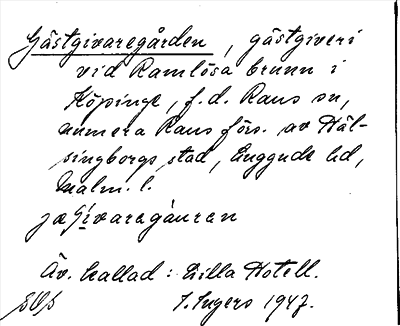 Gästgivaregården, gästgiveri
vid Ramlösa brunn i
Köpinge, f.d. Raus sn,
numera Raus förs. av Häl-
singborgs stad, Luggude hd,
Malm. l.
Äv. kallad: Lilla Hotell.
I. Ingers 1947.